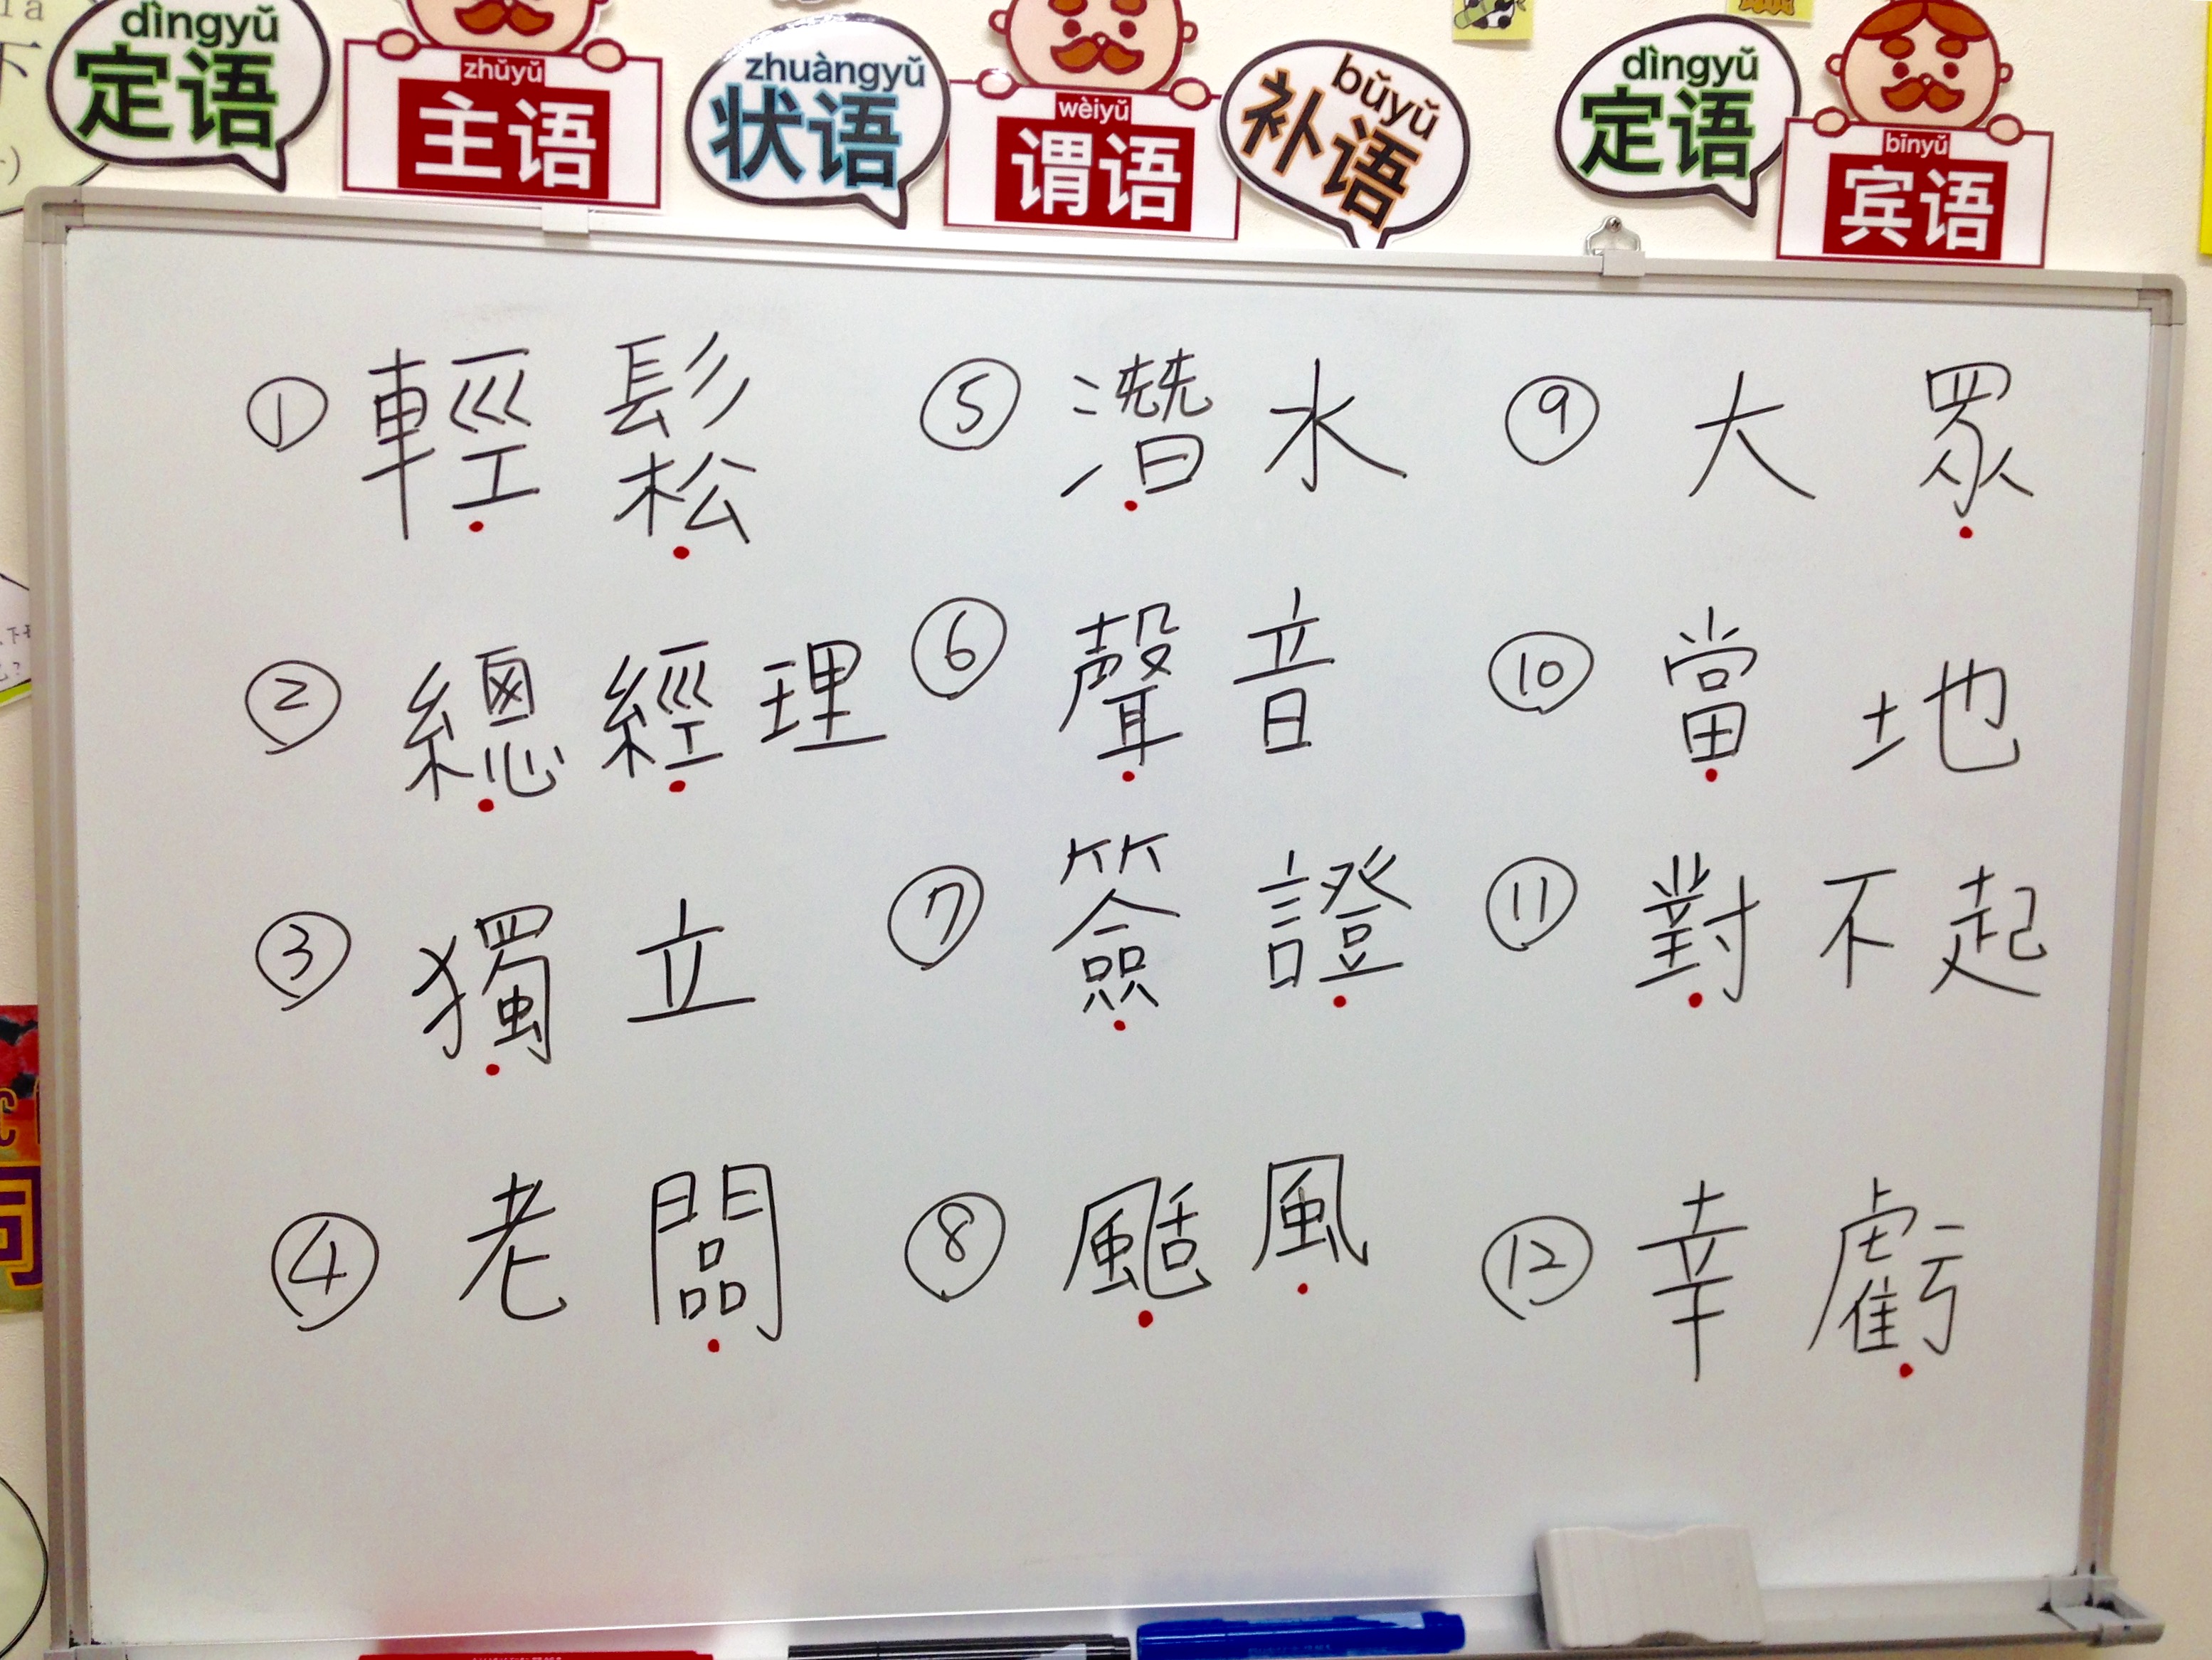 dìngyǔ
定语
zhǔyǔ
主语
zhuàngyǔ
状语
wèiyǔ
谓语
bǔyǔ
补语
dìngyǔ
定语
bīnyǔ
宾语
① 輕鬆
② 總經理
③ 獨立
④ 老闆
⑤ 潛水
⑥ 聲音
⑦ 簽證
⑧ 颳風
⑨ 大眾
⑩ 當地
⑪ 對不起
⑫ 幸虧